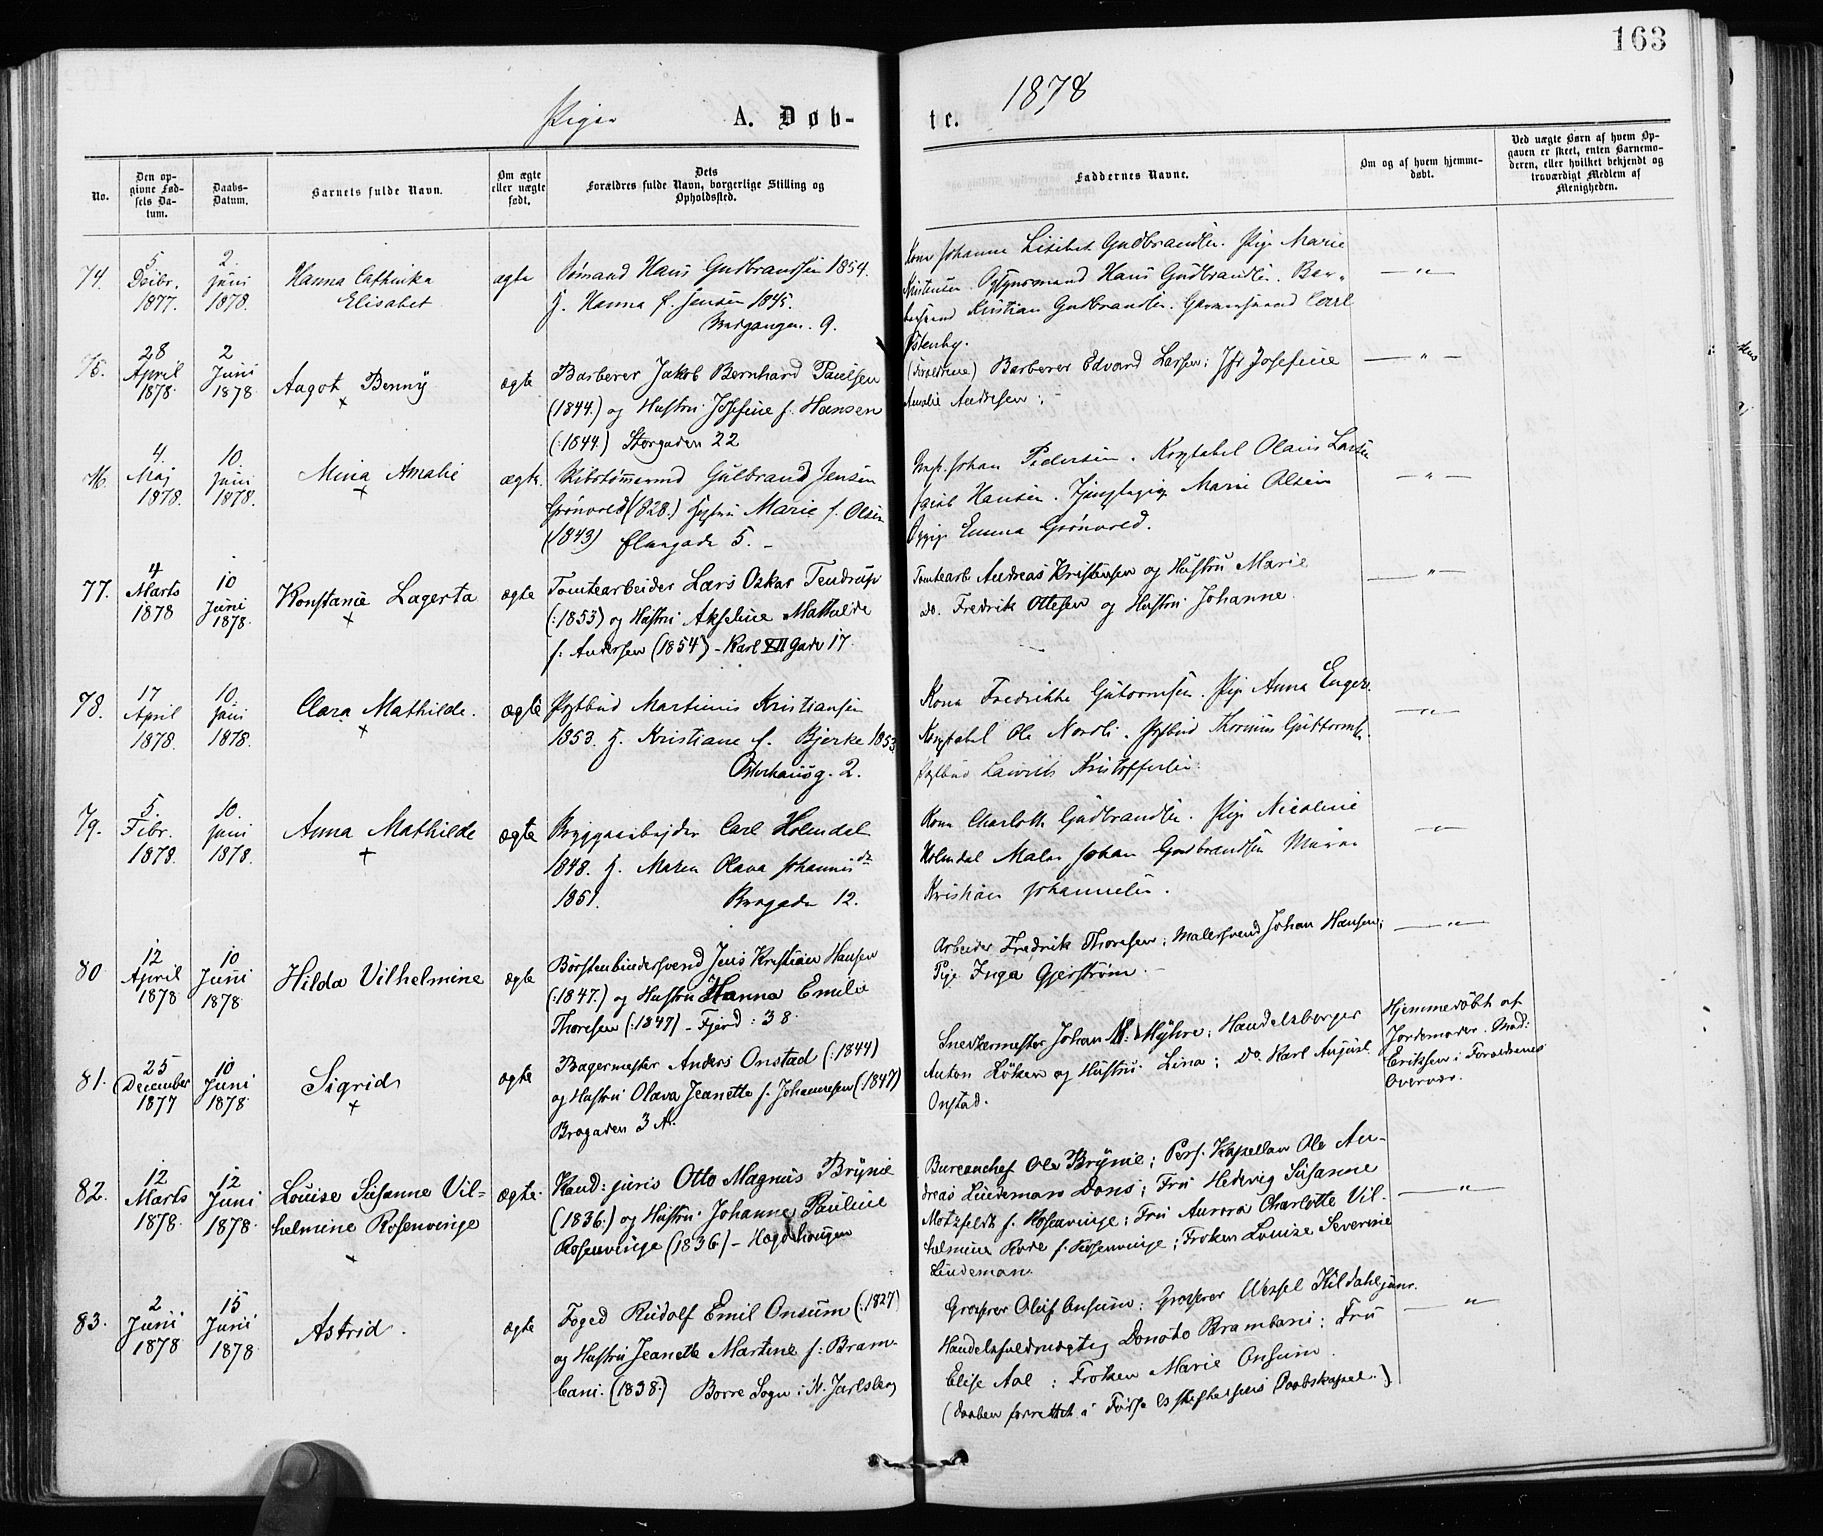 163
1878
Piger A. Døbte.
No.
Den opgivne Fødsels Datum.
Daabs-Datum.
Barnets fulde Navn.
Om ægte eller uægte født.
Dets Forældres fulde Navn, borgerlige Stilling og Opholdssted.
Faddernes Navne.
Om og af hvem hjemmedøbt.
Ved uægte Børn af hvem Opgaven er skeet, enten Barnemoderen, eller hvilket bekjendt og troværdigt Medlem af Menigheden.
74. 5 1877. 2. Juni 1878.
Hanna Cathinka
Elisabet
ægte
Sømand Hans Gudbrandsen 1854.
H. Hanna f. Jensen 1845.
9.
Kone Johanne Lisibet Gudbrandsen. Pige Marie
Kristensen Hans Gudbrandsen. Bar-
Kristian Gudbrandsen. Carl
Østenby.
— " —
75. 28 April 1878 2 Juni 1878
Aagot Benny
+
ægte
Barberer Jakob Bernhard Paulsen
(1844.) og Hustru Josefine f. Hansen
(:1844.) Storgaden 22
(Forældrene) Barberer Edvard Larsen; Jfr Josefine
Amalie Andresen;
— " —
76. 4. Maj 1878. 10. Juni 1878.
Mina Amalie
+
ægte.
Skibstømmermd Gulbrand Jensen
Grønvold (1828.) Hustru Marie f. Olsen
(1843) Elvegade 5. –
Johan Pedersen. Konstabel Olaus Larsen
Jacob Hansen. Marie Olsen
Emma Grønvold.
— " —
77. 4 Marts 1878 10 Juni 1878.
Konstanse Lagerta
+
ægte
Tomtearbeider Lars Oskar Tendrup
(:1853) og Hustru Akseline Mathilde
f: Andersen (1854) – Karl XII Gade 17.
Tomtearb Andreas Kristensen og Hustru Marie
do. Fredrik Ottesen og Hustru Johanne.
— " —
78. 17 April 1878. 10. Juni 1878.
Clara Mathilde.
+
ægte
Postbud Martinius Kristiansen
1853. H. Kristiane f. Bjerke 1853
Osterhausg. 2.
Kone Fredrikke Guttormsen. Pige Anna Engen.
Konstabel Ole Nordli. Postbud Guttormsen
Postbud Laurits Kristoffersen.
— " —
79. 5. Febr. 1878. 10. Juni 1878.
Anna Mathilde
+
ægte
Bryggearbejder Carl Holmdal
1848. H. Maren Olava Johannisdr
1851. Brogade 12.
Kone Charlotte Gudbrandsen. Pige Nicoline
Holmdal Maler Johan Gudbrandsen Murer
Kristian Johannesen.
— " —
80 12 April 1878 10 Juni 1878
Hilda Vilhelmine
ægte
Børstenbindersvend Jens Kristian Hansen
(:1847.) og Hustru Hanna Emilie
Thoresen (:1847) – Fjerd: 38.
Arbeider Fredrik Thoresen; Malersvend Johan Hansen;
Pige Inga Gjerstrøm. –
— " —
81. 25 December 1877 10 Juni 1878
Sigrid
+
ægte
Bagermester Anders Onstad (:1844)
og Hustru Olava Jeanette f. Johannesen (1847)
Brogaden 3 A.
Snedkermester Johan M. Myhre; Handelsborger
Anton Løken og Hustru Lina; Do Karl August
Onstad.
Hjemmedøbt af
Jordemoder Mad:
Eriksen i Forældrenes
Overvær.
82. 12 Marts 1878. 12 Juni 1878.
Louise Susanne Vil-
helmine Rosenvinge
+
ægte.
Kand: juris Otto Magnus Brynie
(1836.) og Hustru Johanne Pauline
Rosenvinge (1836) – Hægdehougen
Bureauchef Ole Brynie; Pers. Kapellan Ole An-
dreas Lindeman Dons; Fru Hedevig Susanne
Motzfeldt f. Rosenvinge; Fru Aurora Charlotte Vil-
helmine Rode f. Rosenvinge; Frøken Louise Severine
Lindeman.
— " —
83. 2 Juni 1878 15 Juni 1878
Astrid.
ægte
Foged Rudolf Emil Onsum (:1827)
og Hustru Jeanette Martine f: Bram-
bani. (1838.) Borre Sogn i N. Jarlsberg
Grosserer Oluf Onsum; Grosserer Wessel Kildahl junr.
Handelsfuldmægtig Donato Brambani; Fru
Elise Aal; Frøken Marie Onsum.
(Daaben forrettet i Stiftelsens Daabskapel.)
— " —